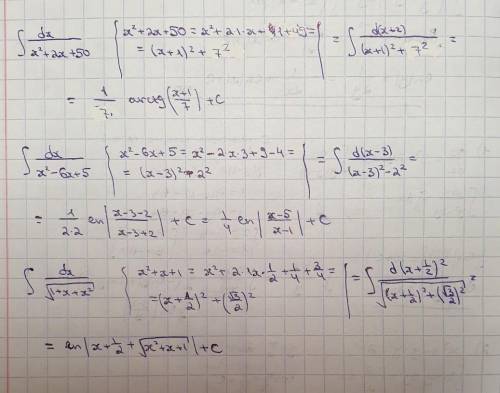 ∫ dx/(x²+2x+50) { x²+2x+50 = x²+2·1·x+1+49 = | = ∫ d(x+2)/((x+1)²+7²) =
= (x+1)² + 7²
= 1/7 · arctg((x+1)/7) + C
∫ dx/(x²-6x+5) { x²-6x+5 = x²-2x·3+9-4 = | = ∫ d(x-3)/((x-3)²-2²) =
= (x-3)² - 2²
= 1/(2·2) ln|(x-3-2)/(x-3+2)| + C = 1/4 ln|(x-5)/(x-1)| + C
∫ dx/√(1+x+x²) { x²+x+1 = x²+2·1x·1/2+1/4+3/4 = | = ∫ d(x+1/2)²/√((x+1/2)²+(√3/2)²) =
= (x+1/2)² + (√3/2)²
= ln|x+1/2+√(x²+x+1)| + C